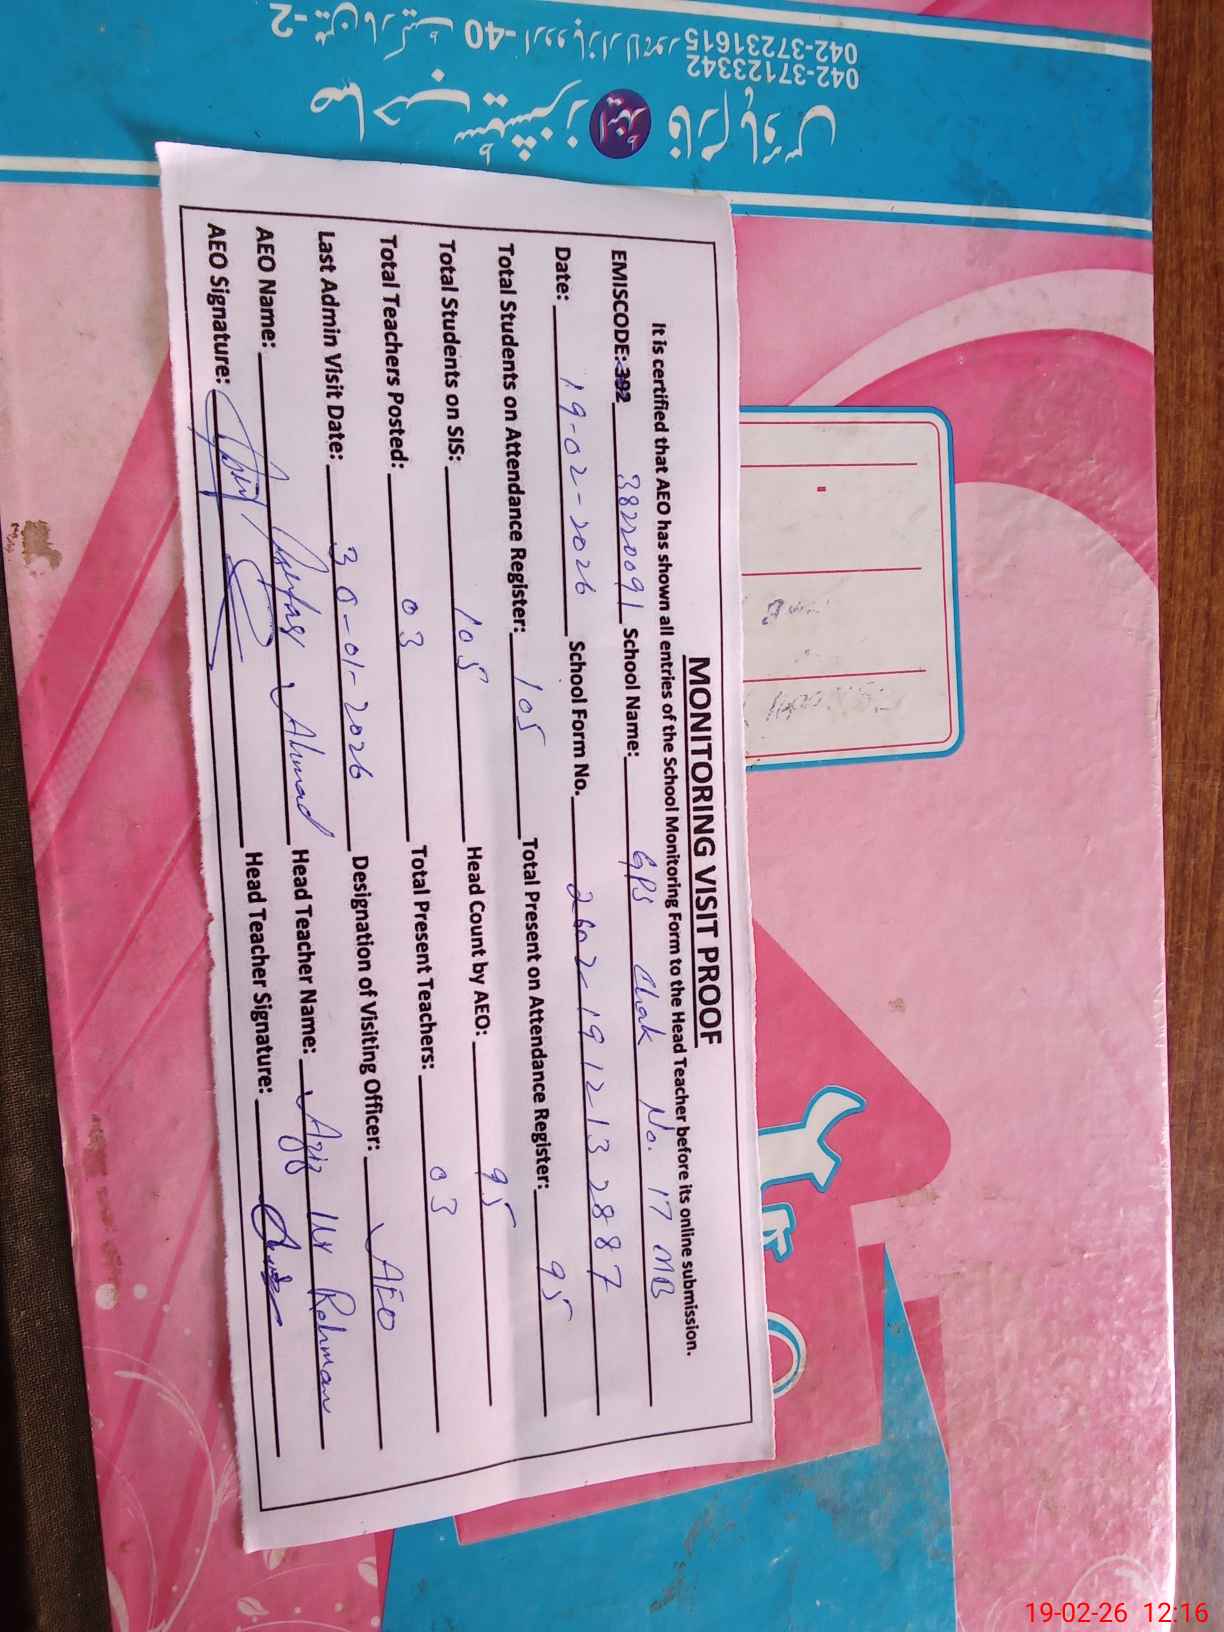 MONITORING VISIT PROOF
It is certified that AEO has shown all entries of the School Monitoring Form to the Head Teacher before its online submission.
EMISCODE: 392 38220091 School Name: GPS Chak No. 17 MB
Date: 19-02-2026 School Form No. 2602191213287
Total Students on Attendance Register: 105 Total Present on Attendance Register: 95
Total Students on SIS: 105 Head Count by AEO: 95
Total Teachers Posted: 03 Total Present Teachers: 03
Last Admin Visit Date: 30-01-2026 Designation of Visiting Officer: AEO
AEO Name: Ahmad Head Teacher Name: Aziz Ur Rehman
AEO Signature: Head Teacher Signature:
صاحب پبلشرز اینڈ فارم ہاؤس
2- مارکیٹ 40- اردو بازار لاہور
042-37123342
042-37231615
19-02-26 12:16